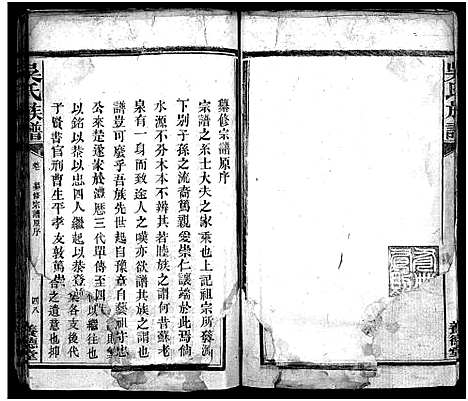 吳氏族譜
纂修宗譜原序
宗譜之系士大夫之家乘也上記祖宗所
下別子孫之流裔篤親愛崇仁讓端於此焉倘
水源不分木本不辨其若睦族之謂何昔蘇老
泉有一人而致途人之嘆亦欲譜其族之謂也
譜豈可廢乎吾族先世起自豫章自藝祖守忠
公來楚遂家於澧歷三代單傳至四
以銘以恭以忠四人繼起以恭
于賢書官刑曹生平孝友敦篤
財 以繼往也
葉各支後代
之遺意也抑
吳氏族譜
卷
纂修宗譜原序
四八
養德堂
養德堂